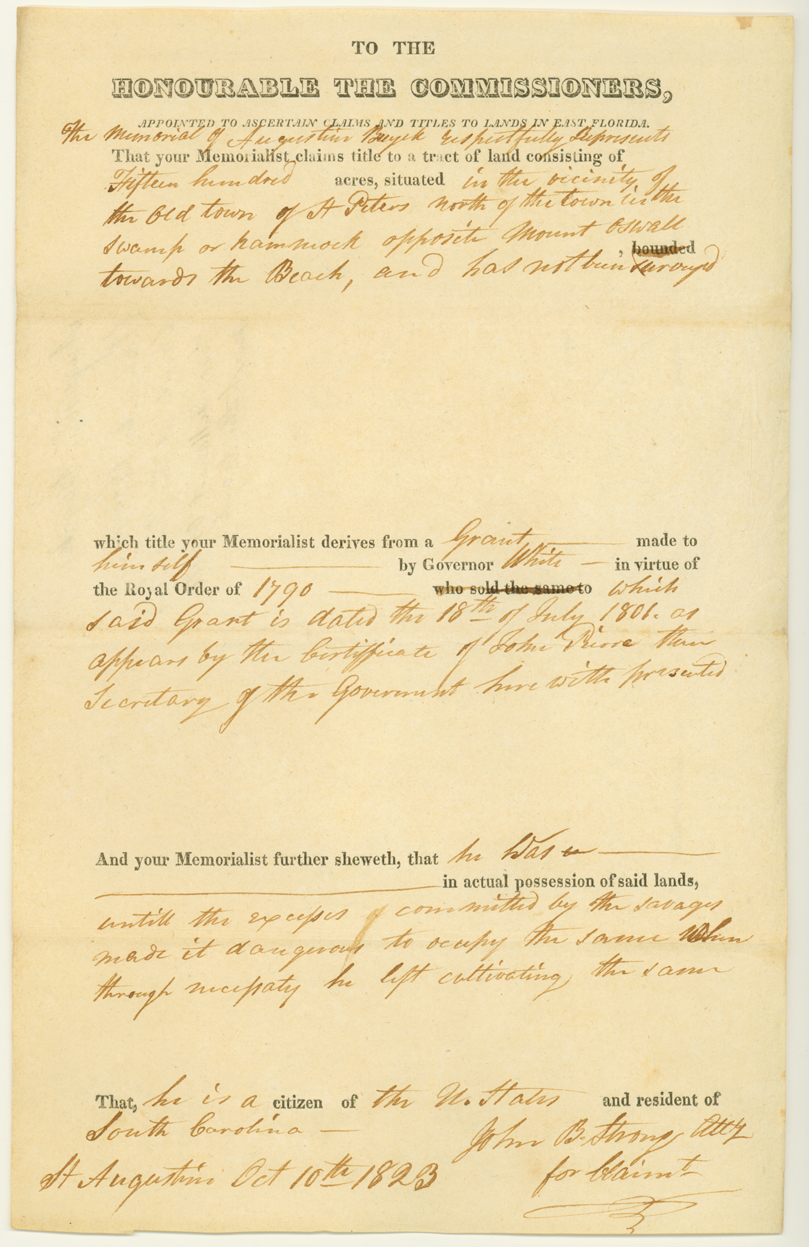 TO THE
HONOURABLE THE COMMISSIONERS,
APPOINTED TO ASCERTAIN CLAIMS AND TITLES TO LANDS IN EAST FLORIDA.
The Memorial of Augustin Buyck respectfully Represents
That your Memorialist claims title to a tract of land consisting of
Fifteen hundred acres, situated in the vicinity of
the Old town of St Peters north of the town in the
swamp or hammock opposite Mount Oswall
, bounded
towards the Beach, and has not been surveyed
which title your Memorialist derives from a Grant made to
himself by Governor White in virtue of
the Royal Order of 1790 who sold the same to which
said Grant is dated the 18th of July 1801. as
appears by the Certificate of John Pierre then
Secretary of the Government here with presented
And your Memorialist further sheweth, that he was
in actual possession of said lands,
untill the excesses committed by the savages
made it dangerous to occupy the same when
through necessaty he left cultivating the same
That, he is a citizen of the U. States and resident of
South Carolina
John B. Strong Atty
St Augustin Oct 10th 1823 for Claimt